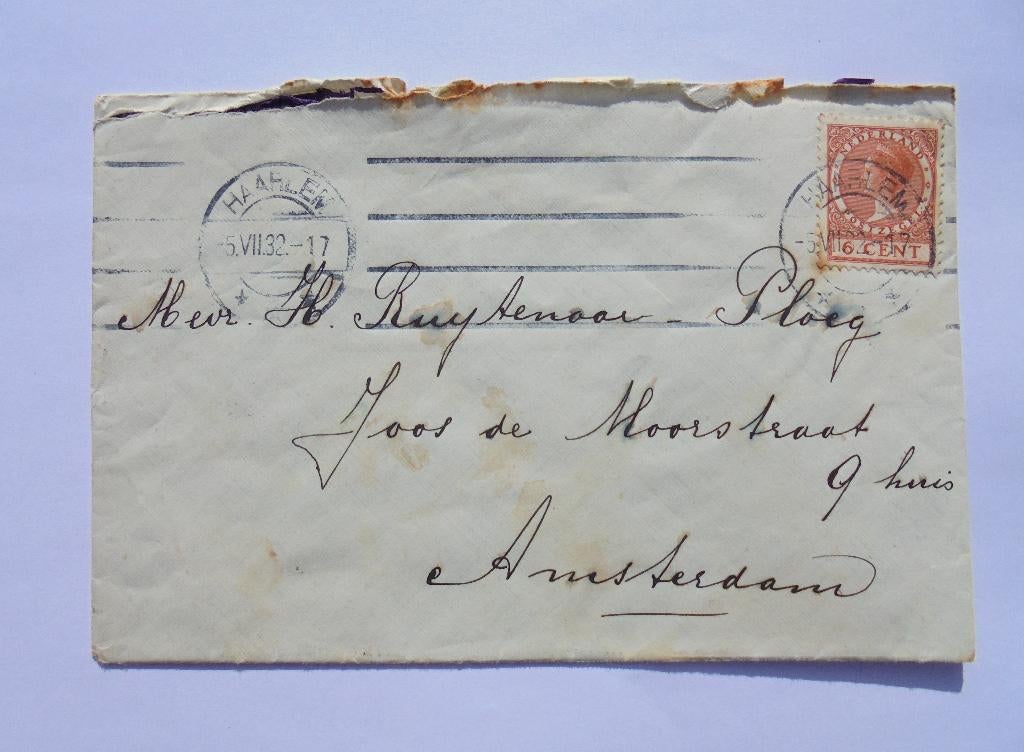 HAARLEM
-5.VII.32.-17
HAARLEM
NEDERLAND
POSTZEGEL
6 CENT
Mevr. H. Ruytenaar - Ploeg
Joos de Moorstraat
9 huis
Amsterdam